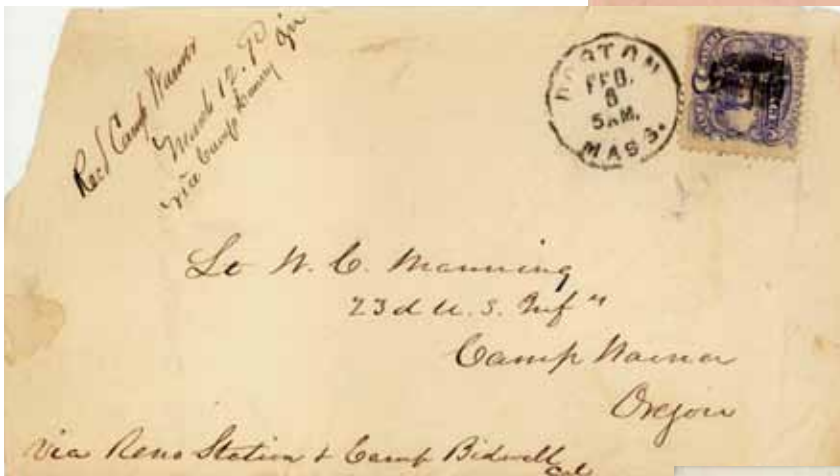 Rec'd Camp Warner
March 12. 70
via Camp
BOSTON
FEB.
8
5 AM.
MASS.
Lt W. C. Manning
23d U. S. Inf"
Camp Warner
Oregon
Via Reno Station & Camp Bidwell
Cal